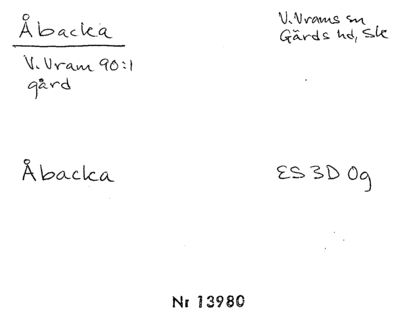 Åbacka
V. Vrams sn
Gärds hd, Sk
V. Vram 90:1
gård
Åbacka
ES 3D 0g
Nr 13980